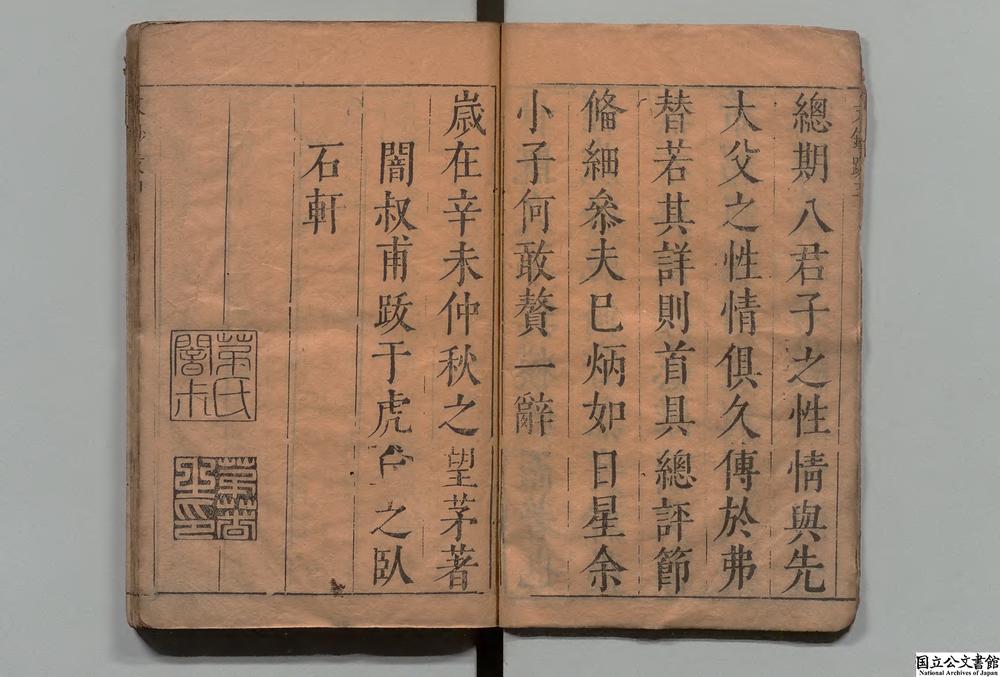 總期八君子之性情與先
大父之性情俱久傳於弗
替若其詳則首具總評節
俻細叅夫巳炳如日星余
小子何敢贅一辭
歲在辛未仲秋之望茅著
闇叔甫跋于虎之臥
石軒
茅氏闇朩
茅著之印
国立公文書館
National Archives of Japan